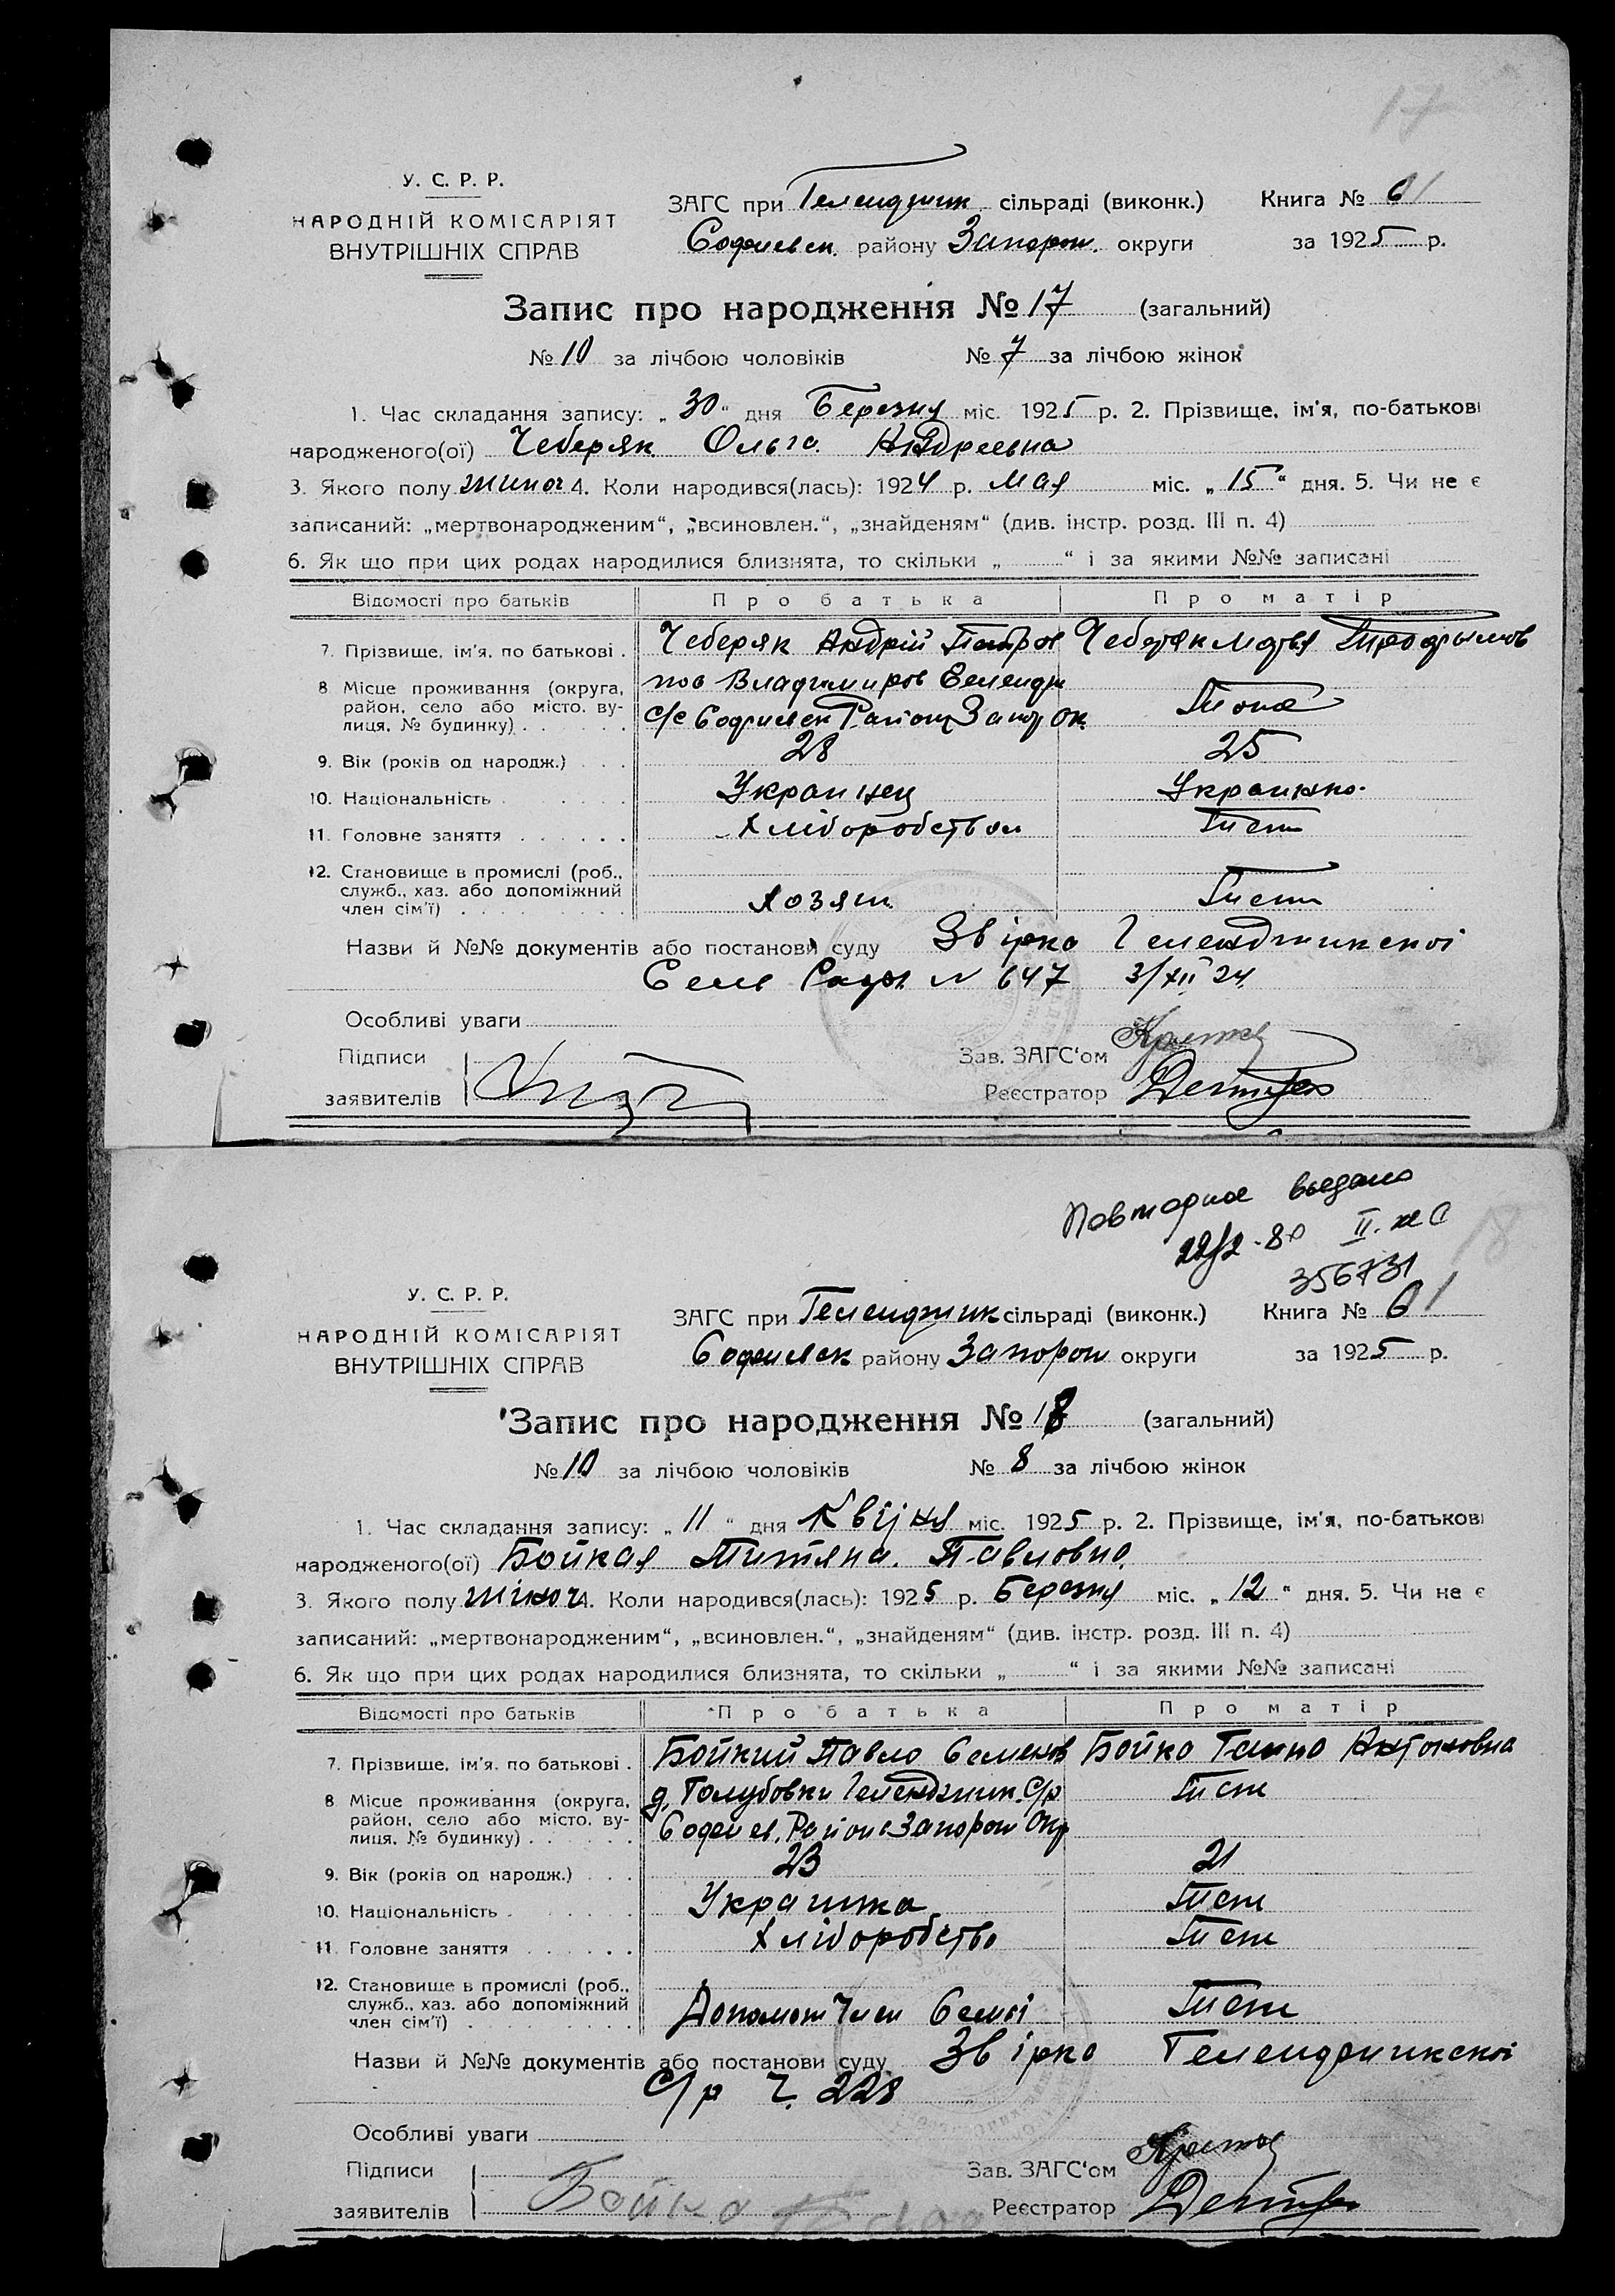 17
У. С. Р. Р.
НАРОДНІЙ КОМІСАРІЯТ
ВНУТРІШНІХ СПРАВ
ЗАГС при Геленджик сільраді (виконк.) Книга № 61
Софиевск. району Запорож. округи за 1925 р.
Запис про народження № 17 (загальний)
№ 10 за лічбою чоловіків № 7 за лічбою жінок
1. Час складання запису: „30“ дня Березня міс. 1925 р. 2. Прізвище, ім'я, по-батькові
народженого(ої) Чеберяк Ольга Андреевна
3. Якого полу жиноч 4. Коли народився(лась): 1924 р. Мая міс. „15“ дня. 5. Чи не є
записаний: „мертвонародженим“, „всиновлен.“, „знайденям“ (див. інстр. розд. III п. 4)
6. Як що при цих родах народилися близнята, то скільки „ “ і за якими №№ записані
Відомості про батьків Про батька Про матір
7. Прізвище, ім'я, по батькові . Чеберяк Андрій Петров Чеберяк
8 Місце проживання (округа, район, село або місто, вулиця, № будинку) . . . . . . пос Владимиров Гелендж
с/с Софиевск Район Запор Ок.
9. Вік (років од народж.) . . . 28 25
10. Національність . . . . . . Украинец Украинка
11. Головне заняття . . . . . . Хліборобством Тиет
12. Становище в промислі (роб., служб., хаз. або допоміжний член сім'ї) . . . . . . . . . Хозяин
Назви й №№ документів або постанови суду Звірка Геленджикскоі
Сель Рады N 647 3/XII 24
Особливі уваги
Підписи
заявителів
Зав. ЗАГС'ом
Реєстратор
Повторное выдано
22/2-80 II. ЖС
356731
18
У. С. Р. Р.
НАРОДНІЙ КОМІСАРІЯТ
ВНУТРІШНІХ СПРАВ
ЗАГС при Геленджик сільраді (виконк.) Книга № 61
Софиевск району Запорож округи за 1925 р.
Запис про народження № 18 (загальний)
№ 10 за лічбою чоловіків № 8 за лічбою жінок
1. Час складання запису: „11“ дня Квітня міс. 1925 р. 2. Прізвище, ім'я, по-батькові
народженого(ої) Бойкая Титяна Павловна
3. Якого полу жіноч 4. Коли народився(лась): 1925 р. Березня міс. „12“ дня. 5. Чи не є
записаний: „мертвонародженим“, „всиновлен.“, „знайденям“ (див. інстр. розд. III п. 4)
6. Як що при цих родах народилися близнята, то скільки „ “ і за якими №№ записані
Відомості про батьків Про батька Про матір
7. Прізвище, ім'я, по батькові . Бойкий Павло Семенов Бойко Ганна Антоновна
8 Місце проживання (округа, район, село або місто, вулиця, № будинку) . . . . . . д. Голубовки Геленджик. С/р
Софиев. Район Запорож Окр
9. Вік (років од народж.) . . . 23 21
10. Національність . . . . . .
11. Головне заняття . . . . . . Хліборобство
12. Становище в промислі (роб., служб., хаз. або допоміжний член сім'ї) . . . . . . . . . Допомож Член Семьі
Назви й №№ документів або постанови суду Звірка Геленджикскоі
С/р Ч. 228
Особливі уваги
Підписи
заявителів Бойко
Зав. ЗАГС'ом
Реєстратор